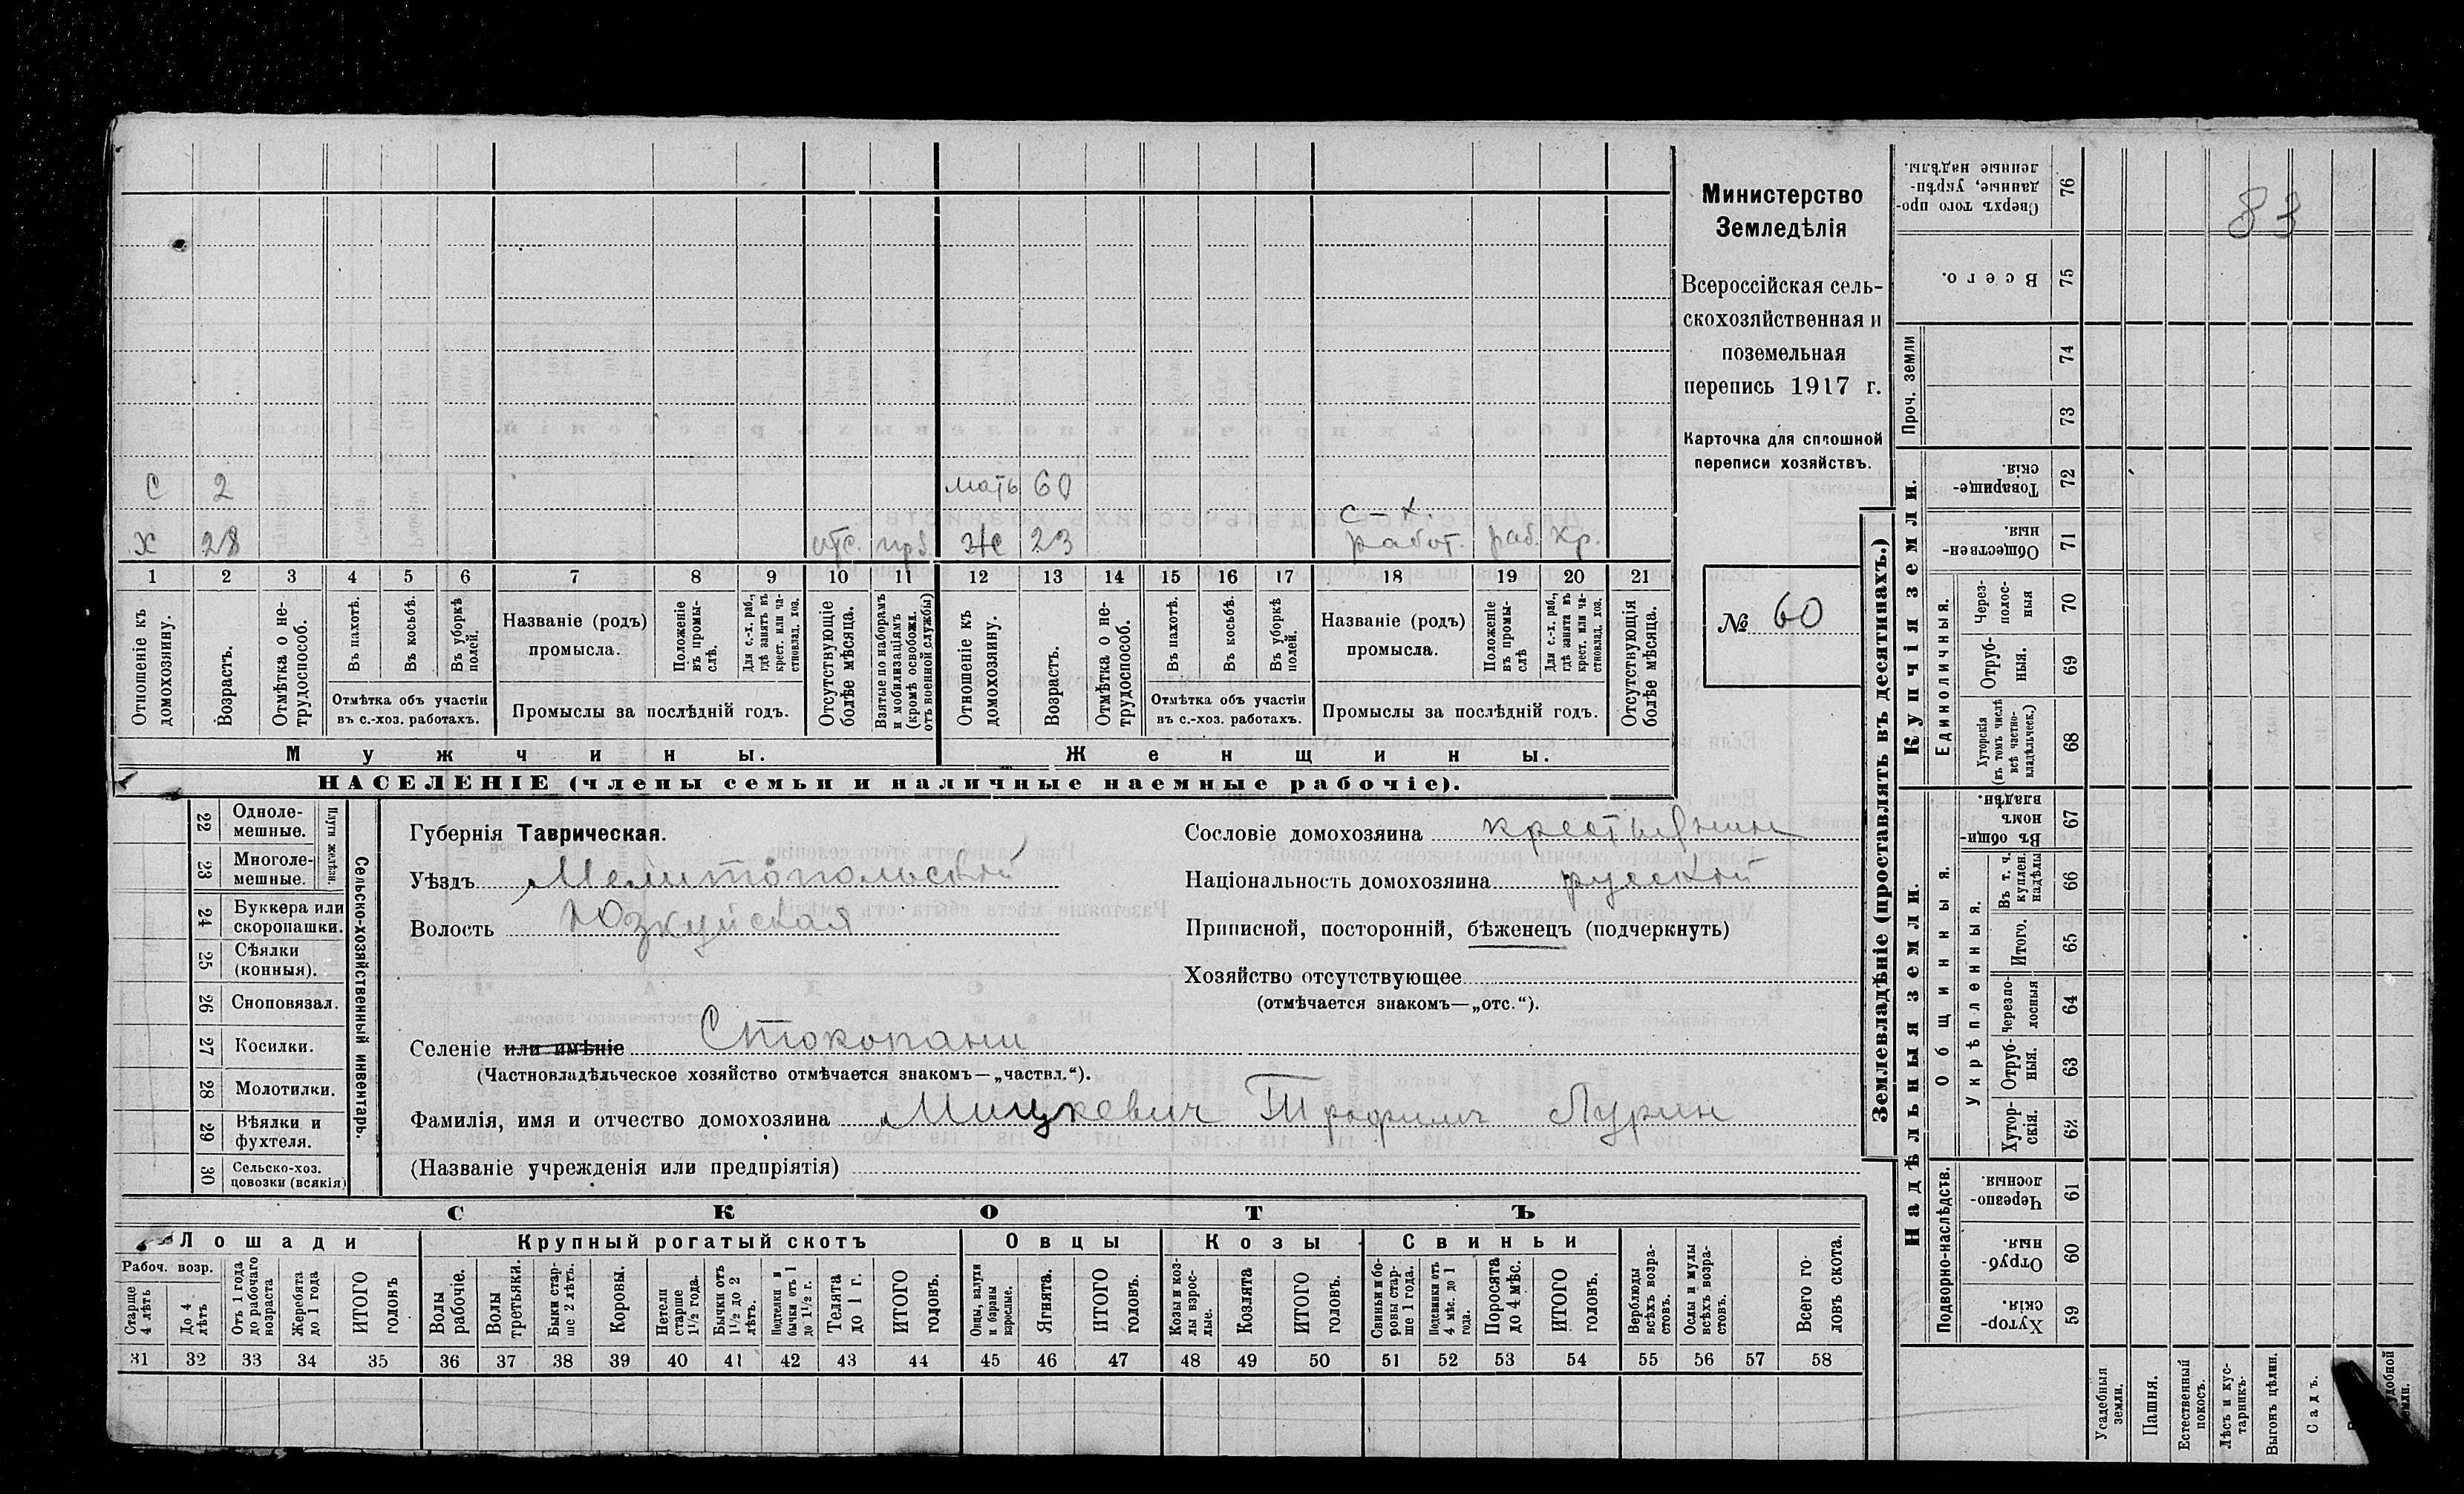 83
Министерство
Земледѣлія
Всероссійская сель-
скохозяйственная и
поземельная
перепись 1917 г.
Карточка для сплошной
переписи хозяйствъ.
№ 60
С 2 мать 60
с-х.
Х 28 отс. ж 23 работ. раб. кр.
1 2 3 4 5 6 7 8 9 10 11 12 13 14 15 16 17 18 19 20 21
Отношеніе къ домохозяину.
Возрастъ.
Отмѣтка о не-трудоспособ.
Въ пахотѣ.
Въ косьбѣ.
Въ уборкѣ полей.
Отмѣтка объ участіи
въ с.-хоз. работахъ.
Названіе (родъ)
промысла.
Положеніе въ промы-слѣ.
Для с.-х. раб., гдѣ занятъ въ крест. или ча-стновлад. хоз.
Промыслы за послѣдній годъ.
Отсутствующіе болѣе мѣсяца.
Взятые по наборамъ и мобилизаціямъ (кромѣ освобожд. отъ военной службы)
Отношеніе къ домохозяину.
Возрастъ.
Отмѣтка о не-трудоспособ.
Въ пахотѣ.
Въ косьбѣ.
Въ уборкѣ полей.
Отмѣтка объ участіи
въ с.-хоз. работахъ.
Названіе (родъ)
промысла.
Положеніе въ промы-слѣ
Для с.-х. раб., гдѣ занята въ крест. или ча-стновлад. хоз.
Промыслы за послѣдній годъ.
Отсутствующія болѣе мѣсяца.
Мужчины.
Женщины.
НАСЕЛЕНІЕ (члены семьи и наличные наемные рабочіе).
22 Одноле-мешные.
23 Многоле-мешные.
Плуги желѣзн.
24 Буккера или скоропашки.
25 Сѣялки (конныя).
26 Сноповязал.
27 Косилки.
28 Молотилки.
29 Вѣялки и фухтеля.
30 Сельско-хоз. повозки (всякія)
Сельско-хозяйственный инвентарь.
Губернія Таврическая.
Уѣздъ Мелитопольской
Волость Юзкуйская
Сословіе домохозяина крестьянин
Національность домохозяина русской
Приписной, посторонній, бѣженецъ (подчеркнуть)
Хозяйство отсутствующее
(отмѣчается знакомъ—„отс.“).
Селеніе или имѣніе Стокопани
(Частновладѣльческое хозяйство отмѣчается знакомъ—„частвл.“).
Фамилія, имя и отчество домохозяина Мицкевич Трофимъ
(Названіе учрежденія или предпріятія)
СКОТЪ
Лошади
Крупный рогатый скотъ
Овцы
Козы
Свиньи
Рабоч. возр.
Старше 4 лѣтъ
До 4 лѣтъ
Отъ 1 года до рабочаго возраста
Жеребята до 1 года
ИТОГО головъ
Волы рабочіе.
Волы третьяки.
Быки стар-ше 2 лѣтъ.
Коровы.
Нетели старше 1½ года.
Бычки отъ 1½ до 2 лѣтъ.
Подтелки и бычки отъ 1 до 1½ г.
Телята до 1 г.
ИТОГО головъ.
Овцы, валухи и бараны взрослые.
Ягнята.
ИТОГО головъ.
Козы и коз-лы взрос-лые.
Козлята
ИТОГО головъ.
Свиньи и бо-ровы стар-ше 1 года.
Подсвинки отъ 4 мѣс. до 1 года.
Поросята до 4 мѣс.
ИТОГО головъ.
Верблюды всѣхъ возра-стовъ.
Ослы и мулы всѣхъ возра-стовъ.
Всего го-ловъ скота.
31 32 33 34 35 36 37 38 39 40 41 42 43 44 45 46 47 48 49 50 51 52 53 54 55 56 57 58
Землевладѣніе (проставлять въ десятинахъ.)
Сверхъ того про-данные, укрѣп-ленные надѣлы. 76
Всего. 75
Проч. земли
74
73
Купчія земли.
Товарище-скія. 72
Обществен-ныя. 71
Единоличныя.
Через-полос-ныя 70
Отруб-ныя. 69
Хуторскія (въ томъ числѣ всѣ частно-владѣльческ.) 68
Надѣльныя земли.
Общинныя.
Въ общин-номъ владѣн. 67
Укрѣпленныя.
Въ т. ч. куплен. надѣлы 66
Итого. 65
Черезпо-лосныя 64
Отруб-ныя. 63
Хутор-скія. 62
Подворно-наслѣдств.
Черезпо-лосныя. 61
Отруб-ныя. 60
Хутор-скія. 59
Усадебныя земли.
Пашня.
Естественный покосъ.
Лѣсъ и кус-тарникъ.
Выгонъ цѣлин.
Садъ.